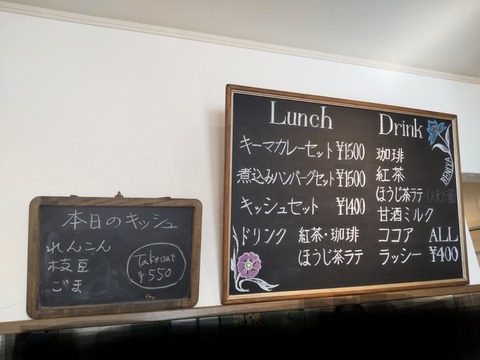 本日のキッシュ
れんこん
枝豆
ごま
Takeout
¥550
Lunch
キーマカレーセット ¥1500
煮込みハンバーグセット ¥1500
キッシュセット ¥1400
ドリンク 紅茶・珈琲
ほうじ茶ラテ
Drink
珈琲
紅茶
ほうじ茶ラテ
甘酒ミルク
ココア
ラッシー
ALL
¥400